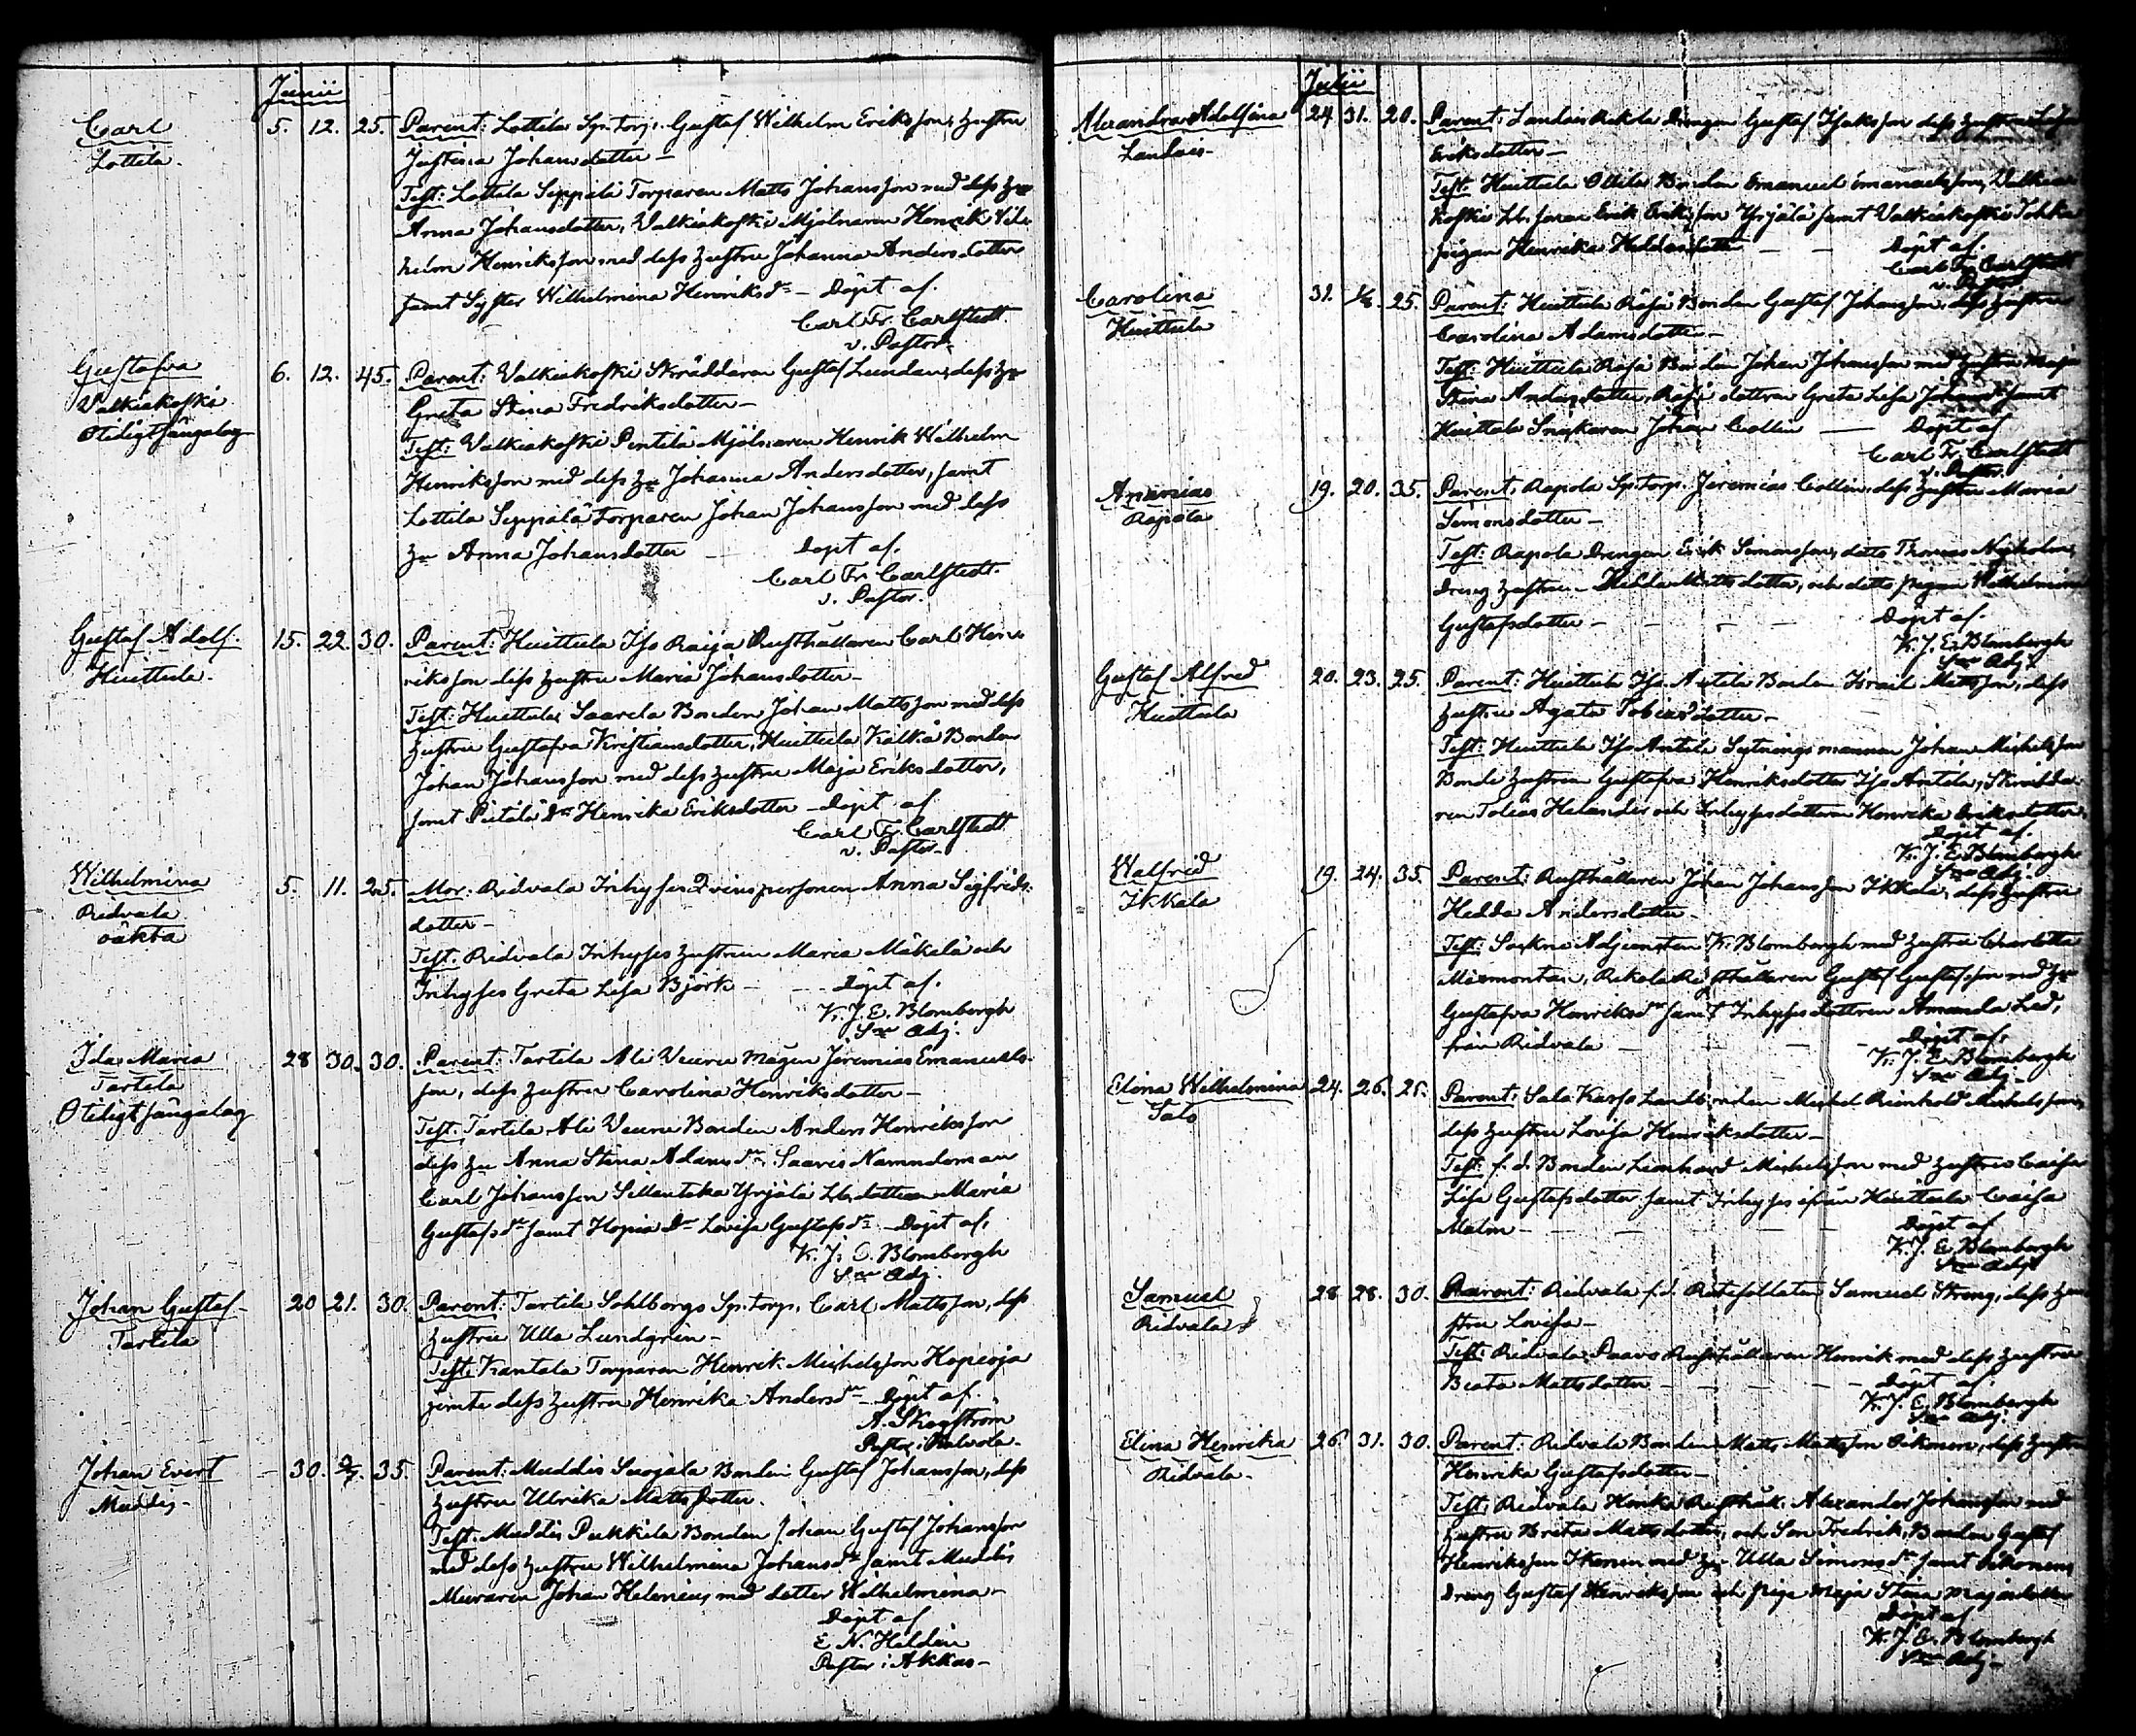 Junii
Carl
Lottila.
5. 12. 25. Parent: Lottila Sp. torp. Gustaf Wilhelm Eriksson, hustru
Justina Johansdotter —
Test: Lottila Seppälä Torparen Matts Johansson med dess hu
Anna Johansdotter, Walkiakoski Mjölnaren Henrik Wil-
helm Henriksson med dess hustru Johanna Andersdotter
samt Syster Wilhelmina Henriksdr — Döpt af.
Carl Fr. Carlstedt.
v. Pastor.
Gustafva
Walkiakoski
Otidigt sängalag
6. 12. 45. Parent: Walkiakoski Skräddaren Gustaf Lundan, dess hu
Greta Stina Fredriksdotter —
Test: Walkiakoski Pentilä Mjölnaren Henrik Wilhelm
Henriksson med dess hu Johanna Andersdotter, samt
Lottila Seppälä Torparen Johan Johansson med dess
hu Anna Johansdotter — Döpt af.
Carl Fr. Carlstedt.
v. Pastor.
Gustaf Adolf.
Huittula.
15. 22. 30. Parent: Huittula Iso Raija Rusthållaren Carl Hen-
riksson dess hustru Maria Johansdotter —
Test: Huittula Saarela Bonden Johan Mattsson med dess
hustru Gustafva Kristiansdotter, Huittula Kalkia Bonden
Johan Johansson med dess hustru Maja Eriksdotter,
samt Pietilä Dr Henrika Eriksdotter — Döpt af
Carl Fr. Carlstedt
v. Pastor.
Wilhelmina
Ridvala
oäkta
5. 11. 25. Mor: Ridvala Inhyses Qvinspersonen Anna Sigfrids-
dotter —
Test. Ridvala Inhyses hustrun Maria Mäkelä och
Inhyses Greta Lisa Björk — — Döpt af.
K. J. E. Blombergh
Sne Adj.
Ida Maria
Tartila
Otidigt sängalag
28 30. 30. Parent: Tartila Ali Weuru mågen Jeremias Emanuels-
son, dess hustru Carolina Henriksdotter —
Test: Tartila Ali Weuru Bonden Anders Henriksson
dess hu Anna Stina Adamsdr, Saaris Namndeman
Carl Johansson Sillantaka Yrjälä Lb. dottren Maria
Gustafsdr samt Hopia Dr Lovisa Gustafsdr — Döpt af.
K. J. E. Blombergh
Sne Adj.
Johan Gustaf —
Tartila
20 21. 30. Parent: Tartila Sohlborgs Sp. torp. Carl Mattsson, dess
hustru Ulla Lundgrén —
Test: Kantala Torparen Henrik Michelsson Hopeoja
jemte dess hustru Henrika Andersdr — Döpt af.
A. Skogström
Pastor i Kalvola.
Johan Evert
Muddis.
— 30. 2/7. 35. Parent: Muddis Suojala Bonden Gustaf Johansson, dess
hustru Ulrika Mattsdotter.
Test: Muddis Pukkila Bonden Johan Gustaf Johansson
med dess hustru Wilhelmina Johansdr samt Muddis
Muraren Johan Helenius, med dotter Wilhelmina —
Döpt af
E N. Heldén
Pastor i Akkas —
Julii
Alexandra Adolfina
Landais —
24 31. 20. Parent: Landais Rekola Drengen Gustaf Isaksson dess hustru Lisa
Eriksdotter —
Test: Huittula Ottila Bonden Emanuel Emanuelsson, Walkia-
koski Lb. sonen Erik Eriksson Yrjälä samt Walkiakoski
pigan Henrika — — Döpt af.
Carl Fr. Carlstedt
v. Pastor
Carolina
Huittula
31. 1/8. 25. Parent: Huittula Räisä Bonden Gustaf Johansson, dess hustru
Carolina Adamsdotter —
Test: Huittula Räisä Bonden Johan Johansson med hustru Maja
Stina Andersdotter, Räisä dottren Greta Lisa Johansdr samt
Huittula Snickaren Johan Collin — Döpt af
Carl Fr. Carlstedt
v. Pastor
Ananias
Rapola
19. 20. 35. Parent: Rapola Sp. torp. Jeremias Collin, dess hustru Maria
Simonsdotter —
Test: Rapola Drengen Erik Simonsson, detto Thomas Nyholm,
Dreng hustrun Hedda Mattsdotter, och detto pigan Wilhelmina
Gustafsdotter — — — Döpt af.
K. J. E. Blombergh
Sne Adj.
Gustaf Alfred
Huittula
20. 23. 25. Parent: Huittula Iso Antila Bonden Israel Mattsson, dess
hustru Agata Tobiasdotter —
Test: Huittula Iso Antila Sytningsmannen Johan Michelsson
Bonde hustrun Gustafva Henriksdotter Iso Antila, Skrädda-
ren Tobias Helander och Inhysesdottren Henrika Eriksdotter
Döpt af.
K. J. E. Blombergh
Sne Adj.
Walfrid
Ikkala
19. 24. 35. Parent: Rusthållaren Johan Johansson Ikkala, dess hustru
Hedda Andersdotter —
Test: Sockne Adjunkten K. Blombergh med hustru Charlotta
Miomontan, Rekola Rusthållaren Gustaf Gustafsson med hu
Gustafva Henriksdr samt Inhysesdottren Amanda Led,
från Ridvala — — — Döpt af.
K. J. E. Blombergh
Sne Adj.
Elina Wilhelmina
Salo
24. 26. 25. Parent: Salo Karfo Landbonden Michel Reinhold Michelsson,
dess hustru Lovisa Henriksdotter —
Test: f. d. Bonden Lionhard Michelsson med hustru Caisa
Lisa Gustafsdotter samt Inhyses ifrån Huittula Caisa
Malm — — — Döpt af
K. J. E. Blombergh
Sne Adj.
Samuel
Ridvala
28 28. 30. Parent: Ridvala f. d. Samuel Streng, dess hu-
stru Lovisa —
Test: Ridvala Paavo Rusthållaren Henrik med dess hustru
Beata Mattsdotter — — Döpt af
K. J. E. Blombergh
Sne Adj.
Elina Henrika
Ridvala.
26 31. 30. Parent: Ridvala Bonden Matts Mattsson Pikonen, dess hustru
Henrika Gustafsdotter —
Test: Ridvala Honka Rusthåll. Alexander Johansson med
hustru Brita Mattsdotter, och Son Fredrik, Bonden Gustaf
Henriksson Ikonen med hu Ulla Simonsdr samt Pikonens
Dreng Gustaf Henriksson och pigan Maja Stina
Döpt af
K. J. E. Blombergh
Sne Adj —